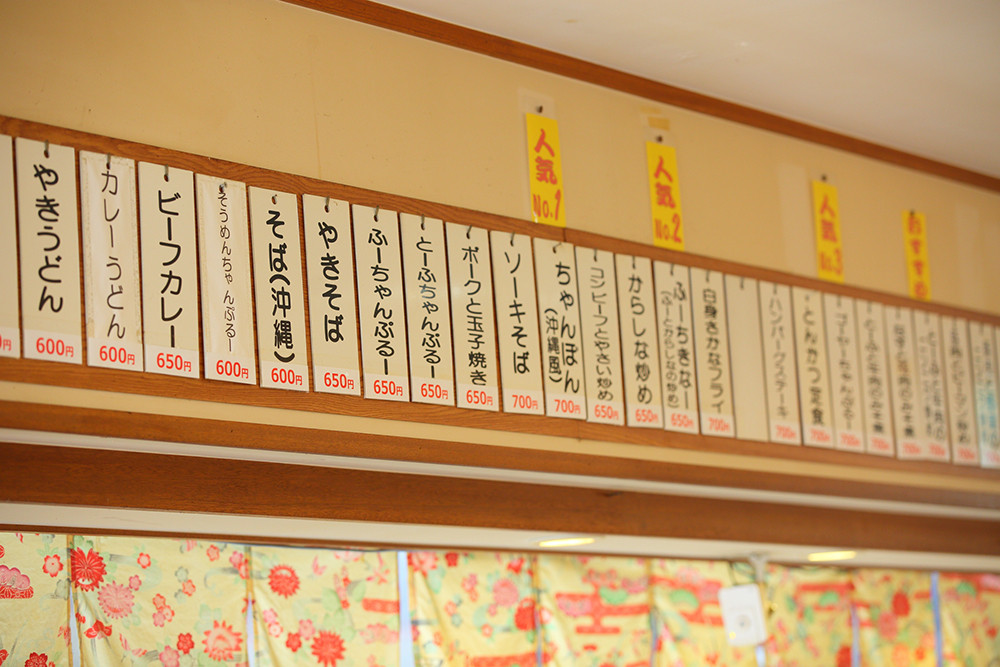 人気
No.1
人気
No.2
人気
No.3
おすすめ
やきうどん
600円
カレーうどん
600円
ビーフカレー
650円
そうめんちゃんぷるー
600円
そば(沖縄)
600円
やきそば
650円
ふーちゃんぷるー
650円
とーふちゃんぷるー
650円
ポークと玉子焼き
650円
ソーキそば
700円
ちゃんぽん
(沖縄風)
700円
コンビーフとやさい炒め
650円
からしな炒め
650円
ふーちきなー
(ふーとからしなの炒め)
650円
白身さかなフライ
700円
ハンバーグステーキ
700円
とんかつ定食
700円
ゴーヤーちゃんぷるー
700円